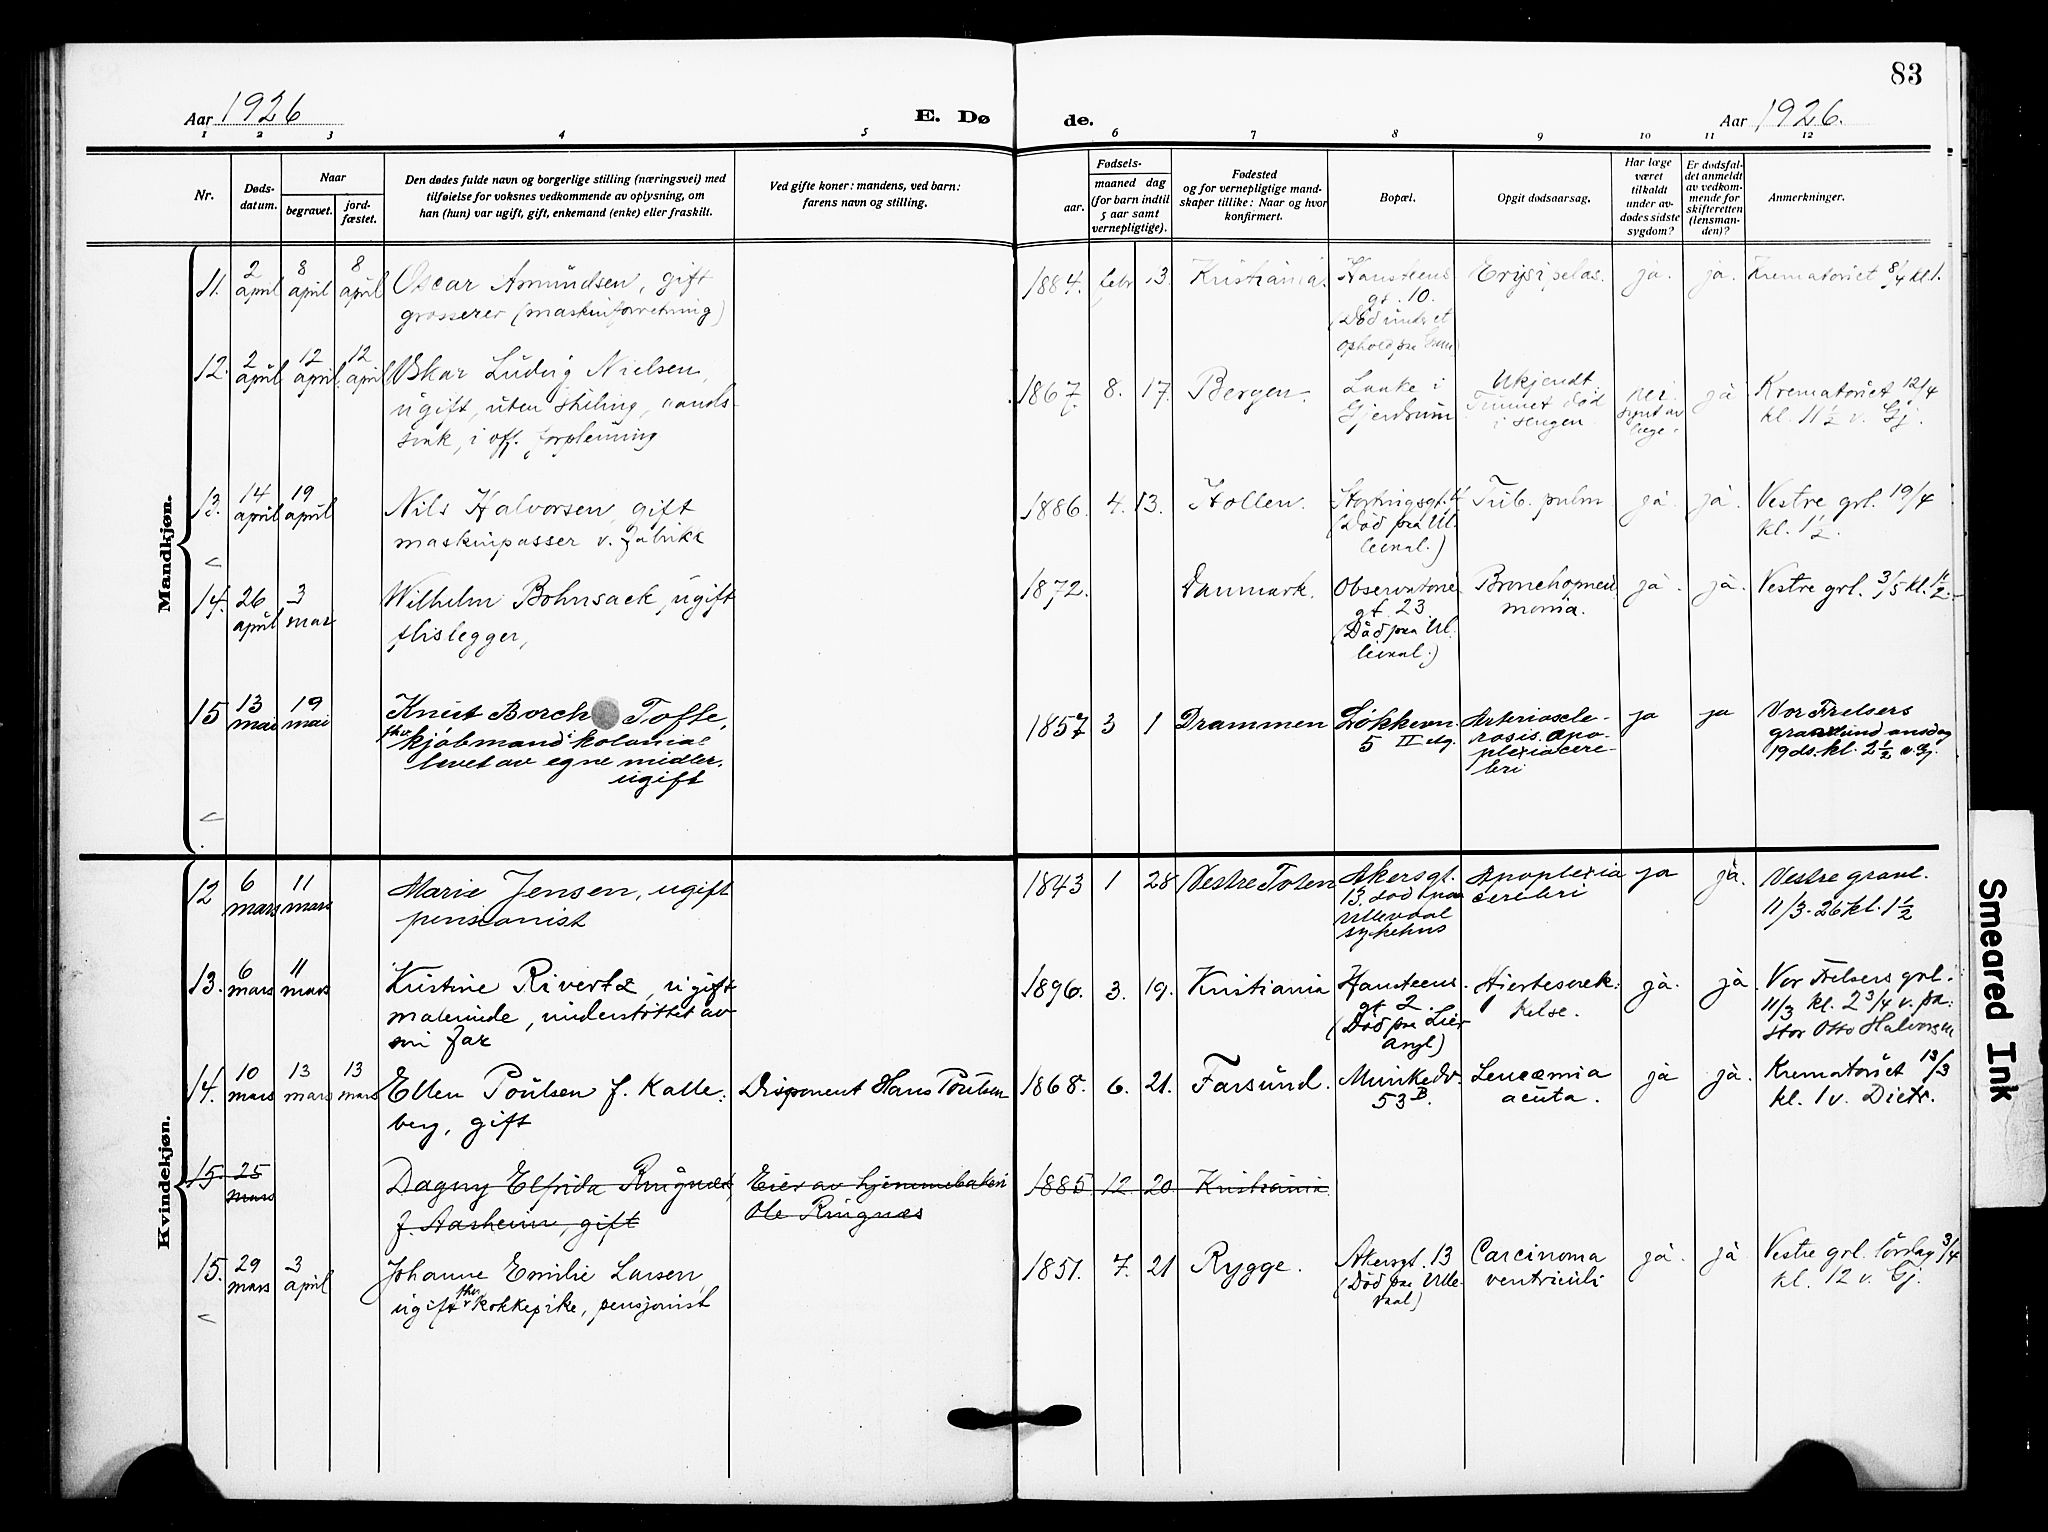 83
Aar 1926
E. Dø
de.
Aar 1926.
1 2 3 4 5 6 7 8 9 10 11 12
Nr.
Døds-
datum.
Naar
begravet.
jord-
fæstet.
Den dødes fulde navn og borgerlige stilling (næringsvei) med
tilføielse for voksnes vedkommende av oplysning, om
han (hun) var ugift, gift, enkemand (enke) eller fraskilt.
Ved gifte koner: mandens, ved barn:
farens navn og stilling.
Fødsels-
aar.
maaned dag
(for barn indtil
5 aar samt
vernepligtige).
Fødested
og for vernepligtige mand-
skaper tillike: Naar og hvor
konfirmert.
Bopæl.
Opgit dødsaarsag.
Har læge
været
tilkaldt
under av-
dødes sidste
sygdom?
Er dødsfal-
det anmeldt
av vedkom-
mende for
skifteretten
(lensman-
den)?
Anmerkninger.
Mandkjøn.
11.
2
april
8
april
8
april
Oscar Amundsen, gift
grosserer (maskinforretning)
1884. febr 13.
Kristiania.
Hansteens
gt. 10.
(Död under et
Erysipelas.
ja.
ja.
Krematoriet 8/4 kl. 1.
12.
2
april
12
april.
12
april
Oskar Ludvig Nielsen,
ugift, uten stilling, aands-
svak, i off. forpleining
1867. 8. 17.
Bergen.
Laake i
Gjerdrum
Ukjendt.
Funnet död
i sengen
nei.
synt av
læge.
ja
Krematoriet 12/4
kl. 11½ v. Gj.
13.
14
april
19
april
Nils Halvorsen, gift
maskinpasser v. fabrikk
1886. 4. 13.
Hollen.
Stortingsgt. 4
(Död paa Ul.
leval.)
Tub. pulm
ja.
ja.
Vestre grl. 19/4
kl. 1½.
14.
26
april
3
mai
Wilhelm Bohnsack, ugift
flislegger,
1872.
Danmark.
Observatorie
gt. 23.
(Död paa Ul.
leval.)
Bronchopneu
monia.
ja.
ja.
Vestre grl. 3/5 kl. 1½.
15
13
mai
19
mai
Knut Borch Tofte,
fhv kjøbmand i kolonial
levet av egne midler.
ugift
1857 3 1
Drammen
Løkkevn.
5 II etg.
Arterioscle-
rosis. apo-
plexia cere-
bri
ja
ja
Vor Frelsers
gravlund onsdag
19 ds. kl. 2½ v. Gj.
Kvindekjøn.
12
6
mars
11
mars
Marie Jensen, ugift
pensionist
1843 1 28
Vestre Toten
Akersgt.
13. död paa
Ullevaal
sykehus
Apoplexia
cerebri
ja
ja.
Vestre gravl.
11/3-26 kl. 1½
13.
6
mars
11
mars
Kristine Rivertz, ugift
malerinde, understöttet av
sin far
1896. 3. 19.
Kristiania
Hansteens
gt 2.
(Död paa Lier
asyl)
Hjertesvek-
kelse.
ja.
ja.
Vor Frelsers grl.
11/3 kl. 2¾ v. pa-
stor Otto Halvorsen
14.
10
mars
13
mars
13
mars
Ellen Poulsen f. Kalle-
berg, gift
Disponent Hans Poulsen
1868. 6. 21.
Farsund.
Munkedv.
53B.
Leucæmia
acuta.
ja
ja.
Krematoriet 13/3
kl. 1 v. Dietr.
15.
25
mars
Dagny Elfrida Ringnæs
f. Aasheim, gift
Eier av hjemmebakeri
Ole Ringnæs
1885 12. 20
Kristiania.
15.
29
mars
3
april
Johanne Emilie Larsen
ugift fhv kokkepike, pensjonist
1851. 7. 21
Rygge.
Akersgt. 13
(Död paa Ulle-
vaal)
Carcinoma
ventriculi
ja.
ja.
Vestre grl. lördag 3/4
kl. 12 v. Gj.
Smeared Ink